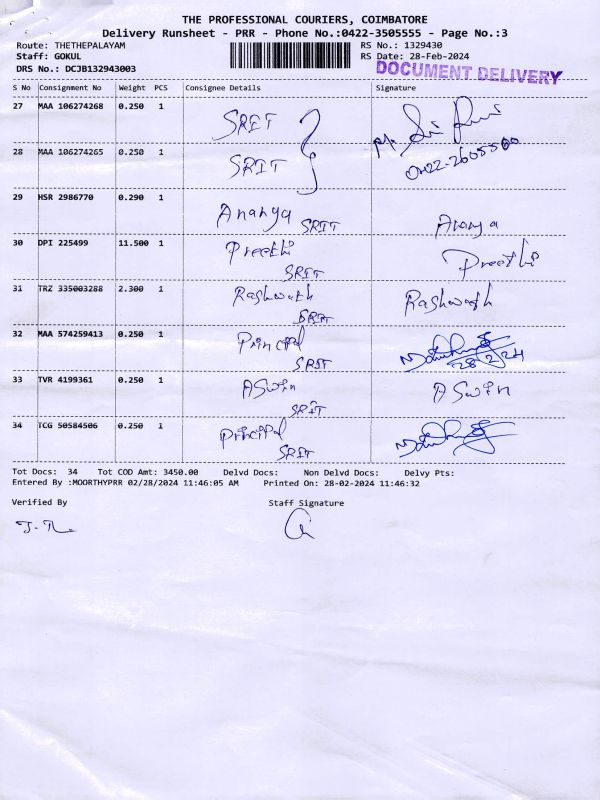 THE PROFESSIONAL COURIERS, COIMBATORE
Delivery Runsheet - PRR - Phone No.:0422-3505555 - Page No.:3
Route: THETHEPALAYAM RS No.: 1329430
Staff: GOKUL RS Date: 28-Feb-2024
DRS No.: DCJB132943003 DOCUMENT DELIVERY
S No Consignment No Weight PCS Consignee Details Signature
27 MAA 106274268 0.250 1 SRIT
28 MAA 106274265 0.250 1 SRIT 0422-2605500
29 HSR 2986770 0.290 1 Ananya SRIT Ananya
30 DPI 225499 11.500 1 Preethi SRIT Preethi
31 TRZ 335003288 2.300 1 Rashwath SRIT Rashwath
32 MAA 574259413 0.250 1 Principal SRIT 28-2-24
33 TVR 4199361 0.250 1 ASwin SRIT ASwin
34 TCG 50584506 0.250 1 Principal SRIT
Tot Docs: 34 Tot COD Amt: 3450.00 Delvd Docs: Non Delvd Docs: Delvy Pts:
Entered By :MOORTHYPRR 02/28/2024 11:46:05 AM Printed On: 28-02-2024 11:46:32
Verified By Staff Signature